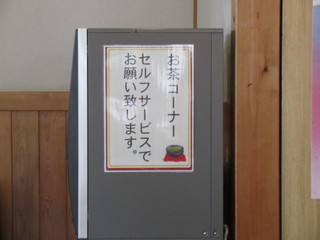 お茶コーナー
セルフサービスで
お願い致します。